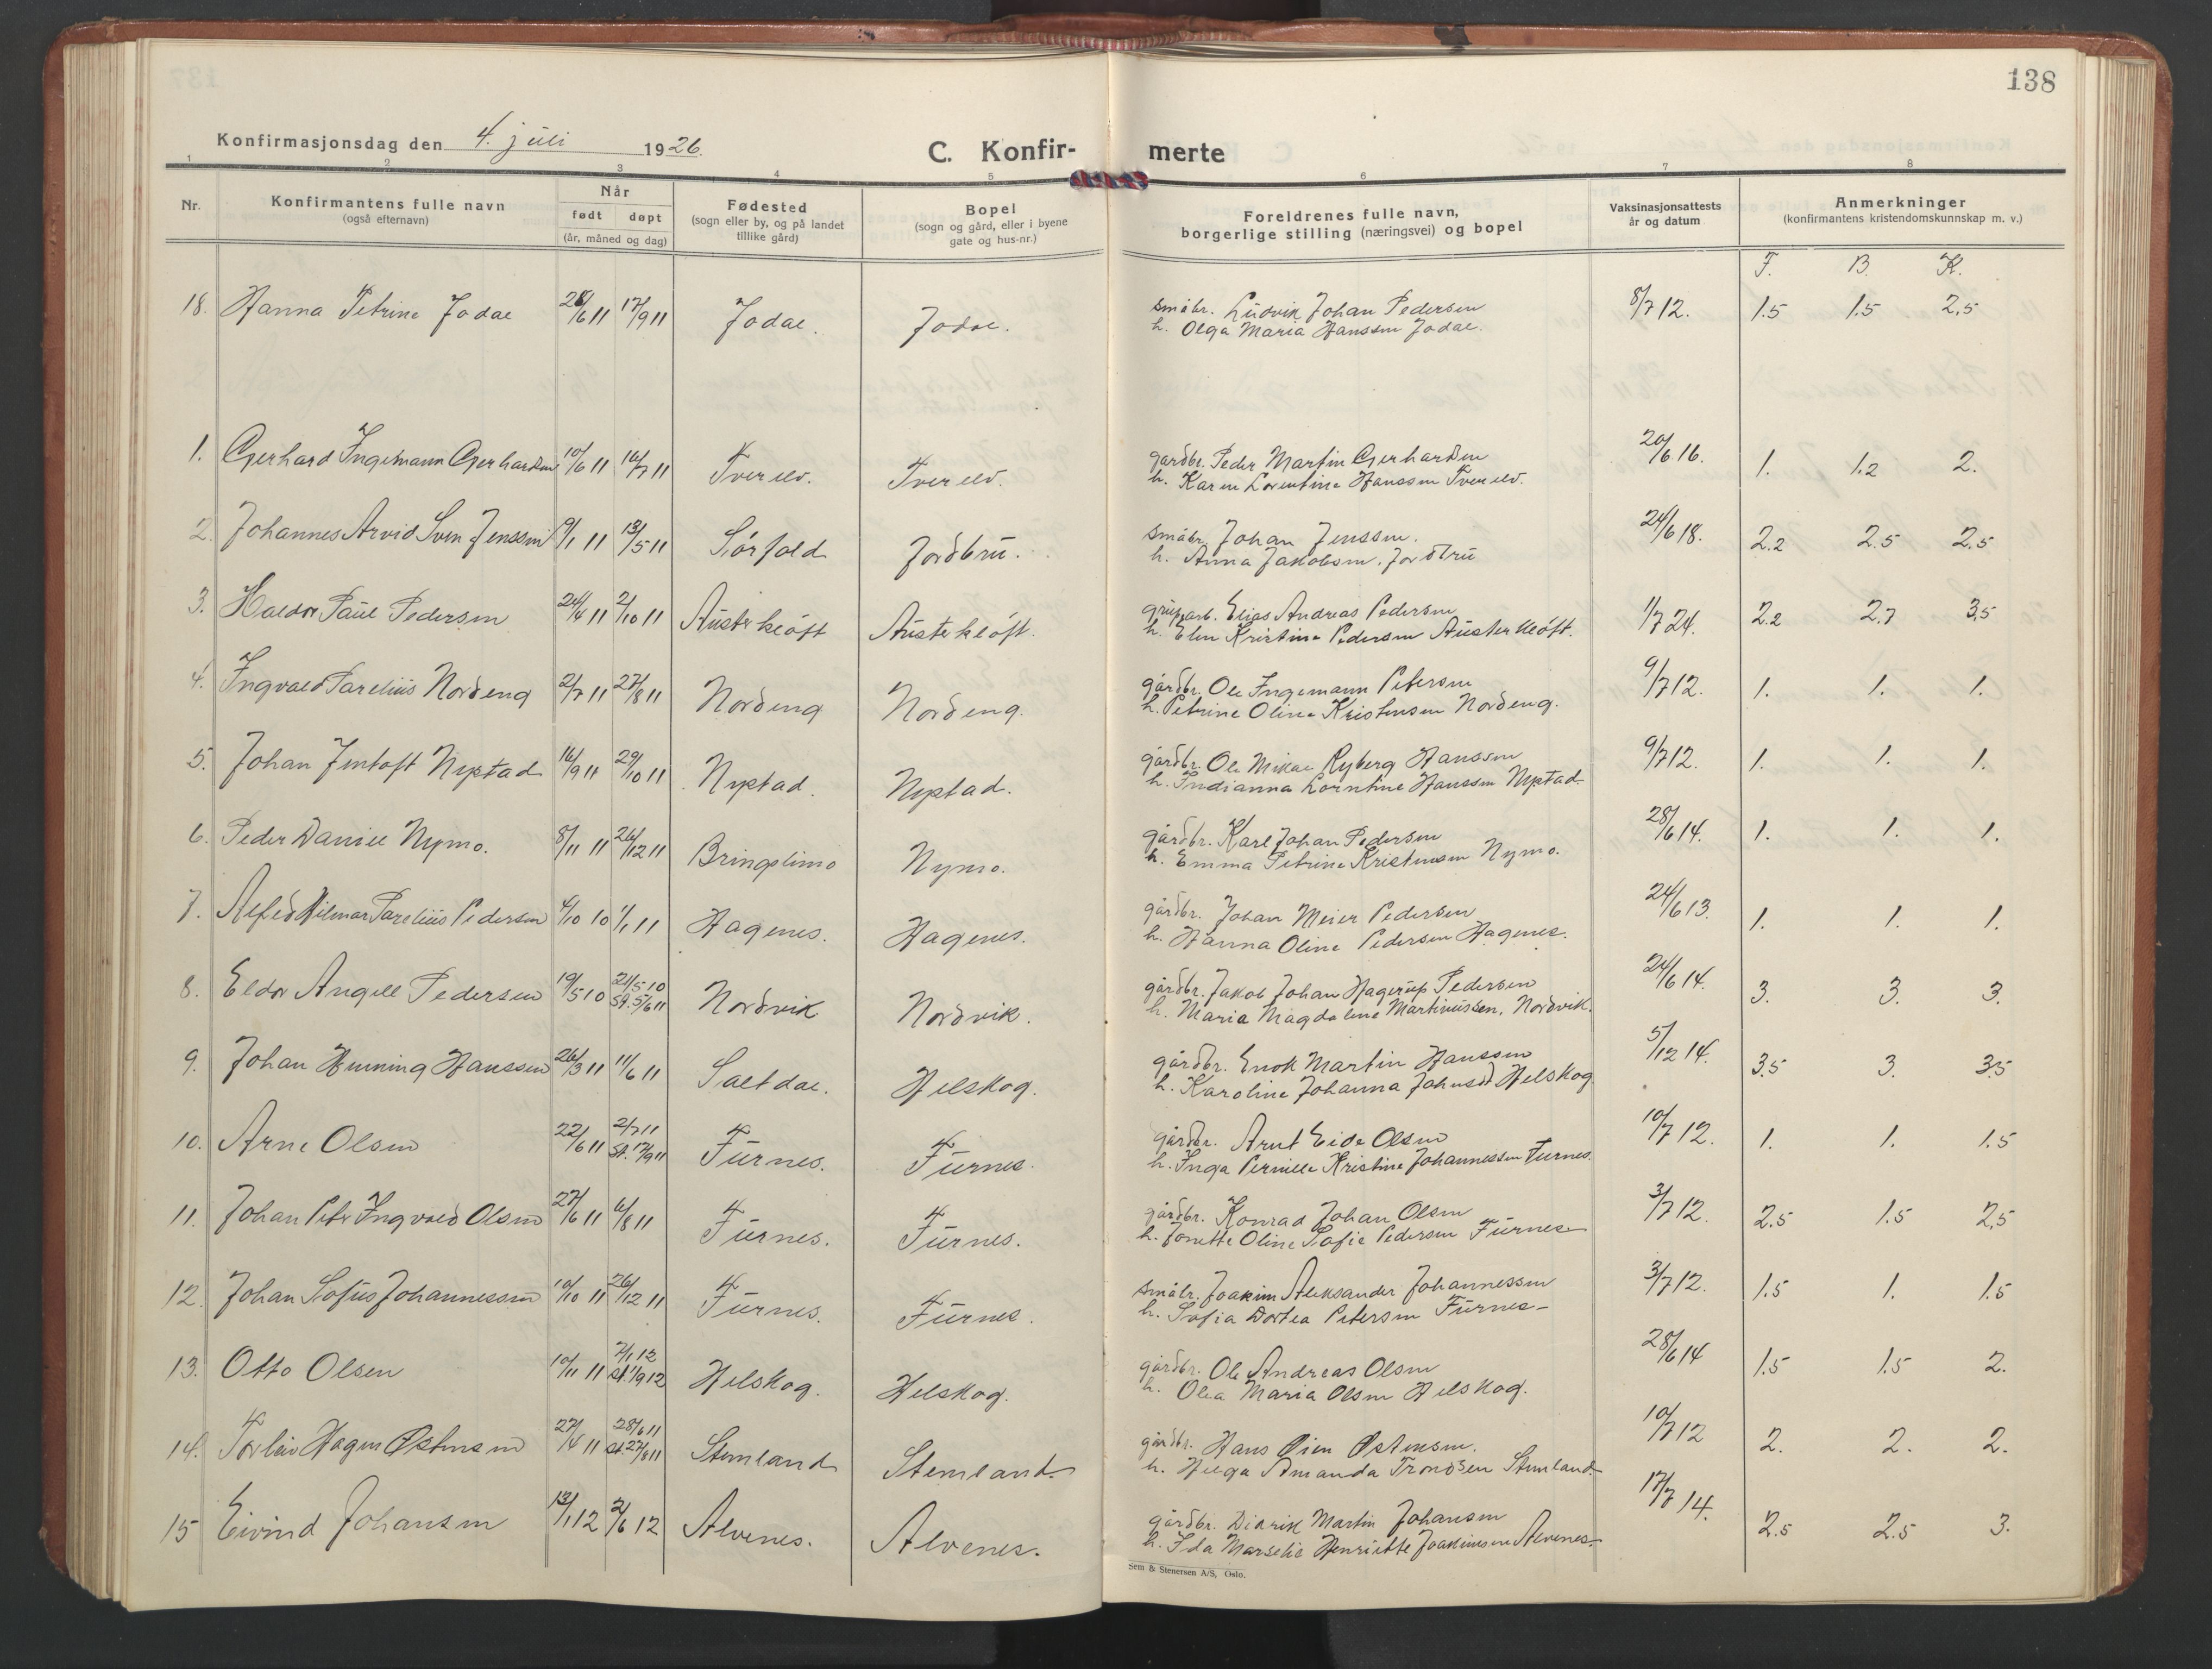 138
Konfirmasjonsdag den 4. juli 1926.
C. Konfir- merte
1 2 3 4 5 6 7 8
Nr. Konfirmantens fulle navn (også efternavn) Når født døpt (år, måned og dag) Fødested (sogn eller by, og på landet tillike gård) Bopel (sogn og gård, eller i byene gate og hus-nr.) Foreldrenes fulle navn, borgerlige stilling (næringsvei) og bopel Vaksinasjonsattests år og datum Anmerkninger (konfirmantens kristendomskunnskap m. v.)
F. B. K.
18. Hanna Petrine Jodal 28/6 11 17/9 11 Jodal. Jodal. småbr. Ludvik Johan Pedersen 8/7 12. 1.5 1.5 2,5
h. Olga Maria Hanssen Jodal.
1. Gerhard Ingemann Gerhardsen 10/6 11 16/7 11 Tverelv. Tverelv. gardbr. Peder Martin Gerhardsen 20/6 16. 1. 1.2 2.
h. Karen Lorentine Hanssen Tverelv.
2. Johannes Arvid Sven Jenssen 9/1 11 13/5 11 Sörfold Jordbru. småbr. Johan Jenssen. 24/6 18. 2.2 2.5 2.5
h. Anna Jakobsen. Jordbru
3. Haldor Paul Pedersen 24/4 11 2/10 11 Austerkløft Austerkløft. grubarb. Elias Andreas Pedersen 1/7 24. 2.2 2.7 3,5
h. Elen Kristine Pedersen Austerkløft.
4. Ingvald Parelius Nordeng 2/7 11 27/8 11 Nordeng Nordeng. gårdbr. Ole Ingemann Petersen 9/7 12. 1. 1. 1.
h. Petrine Oline Kristensen Nordeng.
5. Johan Jentoft Nystad 16/9 11 29/10 11 Nystad. Nystad. gårdbr. Ole Mikal Ryberg Hanssen 9/7 12. 1. 1. 1.
h. Indianna Lorntine Hanssen Nystad.
6. Peder Daniel Nymo. 8/11 11 26/12 11 Bringslimo Nymo. gårdbr. Karl Johan Pedersen 28/6 14. 1. 1. 1.
h. Emma Petrine Kristensen Nymo.
7. Alfed Hilmar Parelius Pedersen 4/10 10 1/1 11 Hagenes. Hagenes. gårdbr. Johan Meier Pedersen 24/6 13. 1. 1. 1.
h. Hanna Oline Pedersen Hagenes.
8. Eldor Angell Pedersen 19/5 10 21/5 10 St. 5/6 11 Nordvik Nordvik. gårdbr. Jakob Johan Hagerup Pedersen 24/6 14. 3. 3. 3.
h. Maria Magdalene Martinussen, Nordvik.
9. Johan Henning Hanssen 26/3 11 11/6 11 Saltdal. Helskog. gårdbr. Enok Martin Hanssen 5/12 14. 3.5 3. 3.5
h. Karoline Johanna Johnsd Helskog
10. Arne Olsen 22/6 11 2/7 11 St. 17/9 11 Furnes. Furnes. gårdbr. Arnt Eide Olsen 10/7 12. 1. 1. 1.5
h. Inga Pernille Kristine Johannessen Furnes.
11. Johan Peter Ingvald Olsen 27/6 11 6/8 11 Furnes. Furnes. gårdbr. Konrad Johan Olsen 3/7 12. 2.5 1.5 2,5
h. Jonette Oline Sofie Pedersen Furnes
12. Johan Sofus Johannessen 10/10 11 26/12 11 Furnes. Furnes. småbr. Joakim Aleksander Johannessen 3/7 12. 1.5 1. 1.5
h. Sofia Dortea Petersen Furnes-
13. Otto Olsen 10/11 11 7/1 12 St. 1/9 12 Helskog. Helskog. gårdbr. Ole Andreas Olsen 28/6 14 1.5 1.5 2.
h. Olea Maria Olsen Helskog.
14. Torleiv Hagen Østensen 27/4 11 28/6 11 St. 27/8 11 Stemland Stemland. gårdbr. Hans Øien Østensen. 10/7 12 2. 2. 2.
h. Helga Amanda Trondsen Stemland.
15 Eivind Johansen 13/1 12 2/6 12 Alvenes. Alvenes. gårdbr. Didrik Martin Johansen 17/7 14. 2.5 2.5 3.
h. Ida Marselie Henriette Joakimsen Alvenes.
Sem & Stenersen A/S, Oslo.